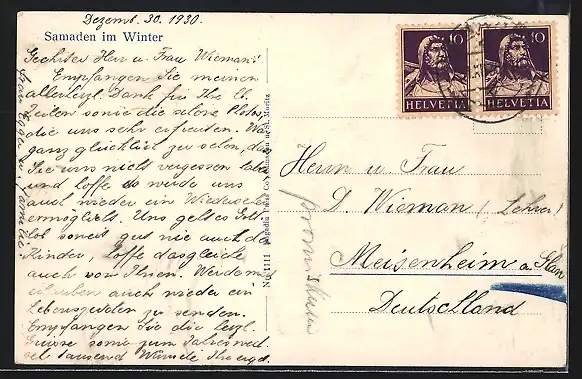 Dezemb. 30. 1930.
Samaden im Winter
Geehrter Herr u. Frau Wieman!
Empfangen Sie meinen
allerherzl. Dank für Ihre lb.
Zeilen sowie die schöne Photos,
die uns sehr erfreuten. War
ganz glücklich zu sehen, dass
Sie uns nicht vergessen haben
und hoffe es werde uns
auch wieder ein Wiedersehen
ermöglicht. Uns geht es Gott-
lob soweit gut wie auch die
Kinder, hoffe dasgleiche
auch von Ihnen. Werde mir
erlauben auch wieder ein
Lebenszeichen zu senden.
Empfangen Sie die herzl.
Grüsse sowie zum Jahreswech-
sel tausend Wünsche Ihre erg.
Frau Egger u. Familie
No 1111 Engadin Press Co Samaden u. St. Moritz
10
HELVETIA
10
HELVETIA
Herrn u Frau
D. Wieman (Lehrer)
Meisenheim a. Glan
Deutschland